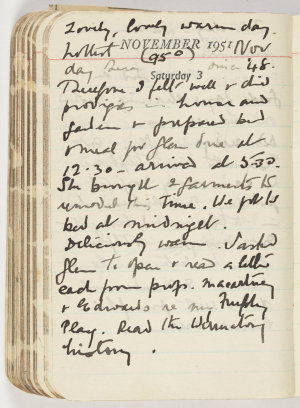 Lovely, lovely warm day.
hottest NOVEMBER 1951 Nov
(95°)
day since '45.
Saturday 3
Therefore I felt well & did
prodigies in house and
garden & prepared bed
& meal for Glen due at
12.30 - arrived at 5.30.
She brought 2 garments to
remodel this time. We got to
bed at midnight.
Deliciously warm. I asked
Glen to open & read a letter
each from profs. Macartney
& Edwards re my
Play. Read the
history.